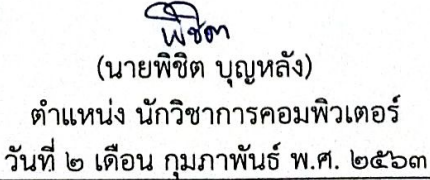 พิชิต
(นายพิชิต บุญหลัง)
ตำแหน่ง นักวิชาการคอมพิวเตอร์
วันที่ ๒ เดือน กุมภาพันธ์ พ.ศ. ๒๕๖๓